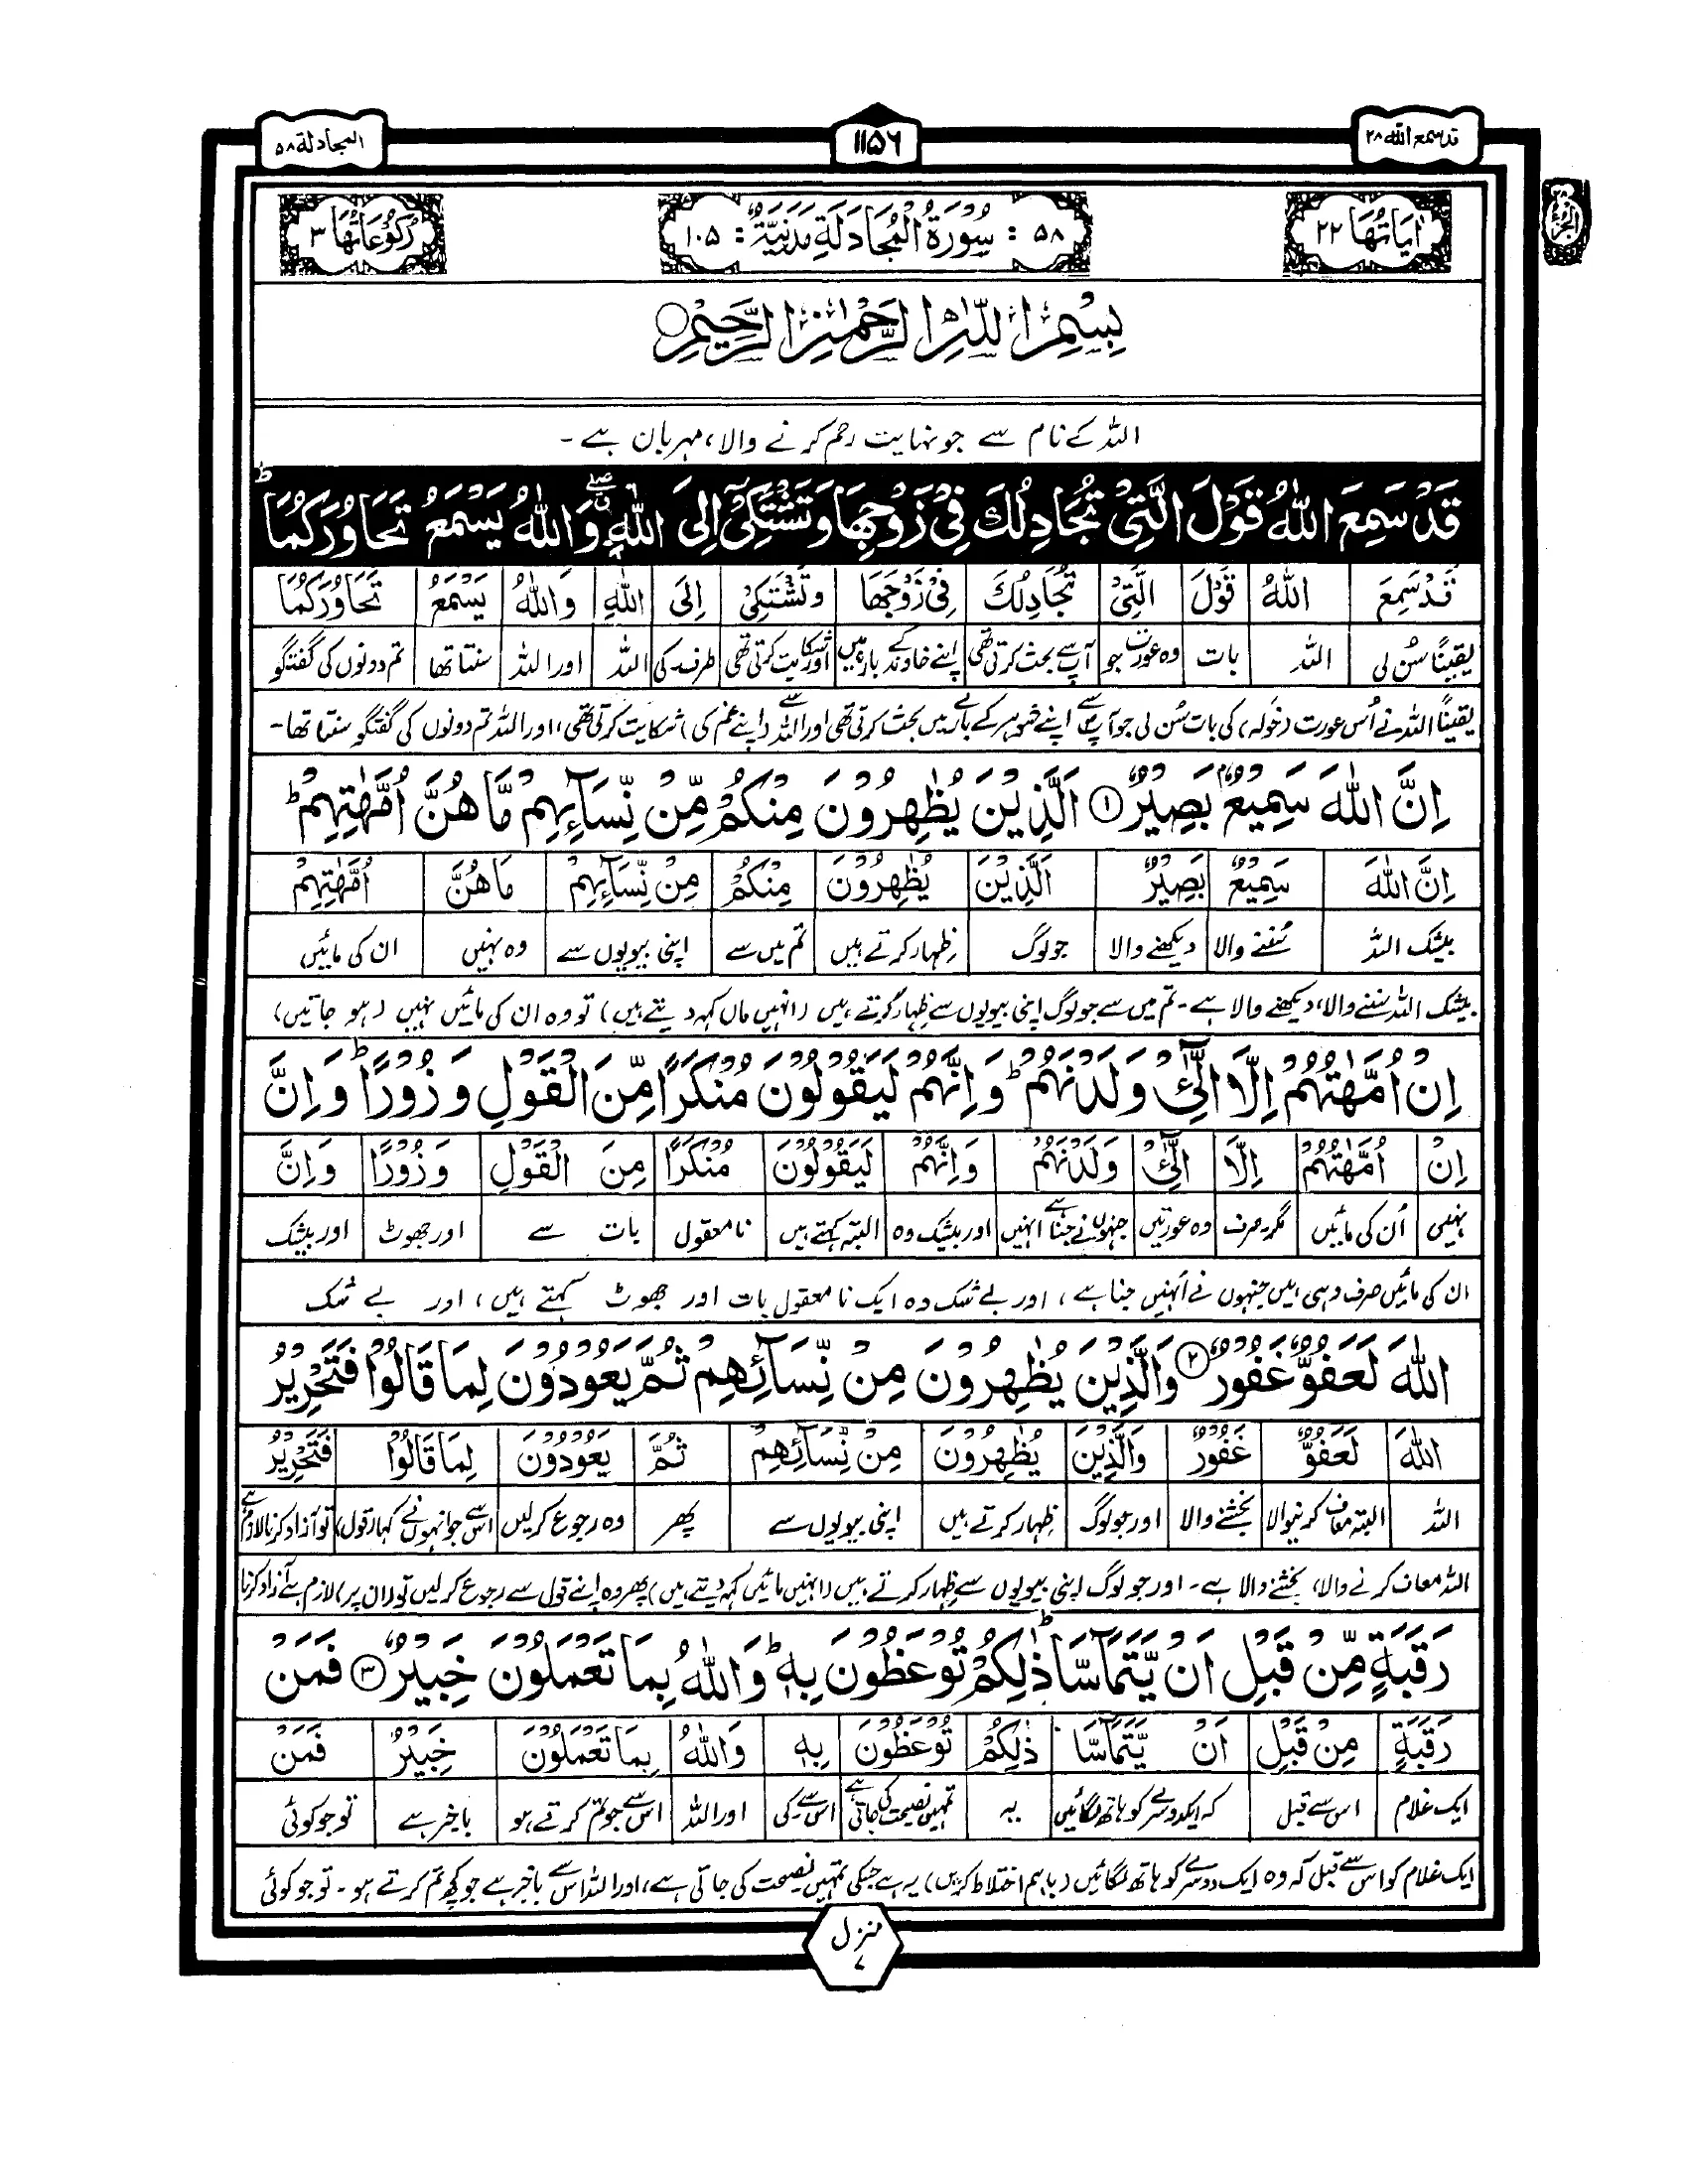 قد سمع الله ۲۸
۱۱۵۶
المجادلة ۵۸
الجزء ۲۸
اٰيَاتُهَا ۲۲
۵۸ : سُوْرَةُ الْمُجَادَلَةِ مَدَنِيَّةٌ : ۱۰۵
رُكُوْعَاتُهَا ۳
بِسْمِ اللّٰهِ الرَّحْمٰنِ الرَّحِيْمِ
اللہ کے نام سے جو نہایت رحم کرنے والا، مہربان ہے ۔
قَدْ سَمِعَ اللّٰهُ قَوْلَ الَّتِيْ تُجَادِلُكَ فِيْ زَوْجِهَا وَتَشْتَكِيْٓ اِلَى اللّٰهِ ۖ وَاللّٰهُ يَسْمَعُ تَحَاوُرَكُمَا ؕ
قَدْ سَمِعَ اللّٰهُ قَوْلَ الَّتِيْ تُجَادِلُكَ فِيْ زَوْجِهَا وَتَشْتَكِيْٓ اِلَى اللّٰهِ وَاللّٰهُ يَسْمَعُ تَحَاوُرَكُمَا
یقیناً سُن لی اللہ بات وہ عورت جو آپ سے بحث کرتی تھی اپنے خاوند کے بارہ میں اور شکایت کرتی تھی طرف۔ کی اللہ اور اللہ سنتا تھا تم دونوں کی گفتگو
یقیناً اللہ نے اُس عورت (خولہ) کی بات سُن لی جو آپ سے اپنے شوہر کے بارے میں بحث کرتی تھی اور اللہ سے (اپنے غم کی) شکایت کرتی تھی، اور اللہ تم دونوں کی گفتگو سنتا تھا ۔
اِنَّ اللّٰهَ سَمِيْعٌۢ بَصِيْرٌ ۝۱ اَلَّذِيْنَ يُظٰهِرُوْنَ مِنْكُمْ مِّنْ نِّسَآئِهِمْ مَّا هُنَّ اُمَّهٰتِهِمْ ؕ
اِنَّ اللّٰهَ سَمِيْعٌ بَصِيْرٌ اَلَّذِيْنَ يُظٰهِرُوْنَ مِنْكُمْ مِنْ نِّسَآئِهِمْ مَا هُنَّ اُمَّهٰتِهِمْ
بیشک اللہ سُننے والا دیکھنے والا جو لوگ ظِہار کرتے ہیں تم میں سے اپنی بیویوں سے وہ نہیں ان کی مائیں
بیشک اللہ سننے والا، دیکھنے والا ہے ۔ تم میں سے جو لوگ اپنی بیویوں سے ظِہار کرتے ہیں (انہیں ماں کہہ دیتے ہیں) تو وہ ان کی مائیں نہیں (ہو جاتیں)
اِنْ اُمَّهٰتُهُمْ اِلَّا الّٰٓئِيْ وَلَدْنَهُمْ ؕ وَاِنَّهُمْ لَيَقُوْلُوْنَ مُنْكَرًا مِّنَ الْقَوْلِ وَزُوْرًا ؕ وَاِنَّ
اِنْ اُمَّهٰتُهُمْ اِلَّا الّٰٓئِيْ وَلَدْنَهُمْ وَاِنَّهُمْ لَيَقُوْلُوْنَ مُنْكَرًا مِنَ الْقَوْلِ وَزُوْرًا وَاِنَّ
نہیں اُن کی مائیں مگر صرف وہ عورتیں جنہوں نے جنا ہے انہیں اور بیشک وہ البتہ کہتے ہیں نامعقول بات سے اور جھوٹ اور بیشک
ان کی مائیں صرف وہی ہیں جنہوں نے اُنہیں جنا ہے، اور بے شک وہ ایک نامعقول بات اور جھوٹ کہتے ہیں، اور بے شک
اللّٰهَ لَعَفُوٌّ غَفُوْرٌ ۝۲ وَالَّذِيْنَ يُظٰهِرُوْنَ مِنْ نِّسَآئِهِمْ ثُمَّ يَعُوْدُوْنَ لِمَا قَالُوْا فَتَحْرِيْرُ
اللّٰهَ لَعَفُوٌّ غَفُوْرٌ وَالَّذِيْنَ يُظٰهِرُوْنَ مِنْ نِّسَآئِهِمْ ثُمَّ يَعُوْدُوْنَ لِمَا قَالُوْا فَتَحْرِيْرُ
اللہ البتہ معاف کرنیوالا بخشنے والا اور جو لوگ ظِہار کرتے ہیں اپنی بیویوں سے پھر وہ رجوع کرلیں اس سے جو انہوں نے کہا (قول) تو آزاد کرنا لازم ہے
اللہ معاف کرنے والا، بخشنے والا ہے ۔ اور جو لوگ اپنی بیویوں سے ظِہار کرتے ہیں (انہیں مائیں کہہ دیتے ہیں) پھر وہ اپنے قول سے رجوع کرلیں تو (ان پر) لازم ہے آزاد کرنا
رَقَبَةٍ مِّنْ قَبْلِ اَنْ يَّتَمَآسَّا ؕ ذٰلِكُمْ تُوْعَظُوْنَ بِهٖ ؕ وَاللّٰهُ بِمَا تَعْمَلُوْنَ خَبِيْرٌ ۝۳ فَمَنْ
رَقَبَةٍ مِنْ قَبْلِ اَنْ يَّتَمَآسَّا ذٰلِكُمْ تُوْعَظُوْنَ بِهٖ وَاللّٰهُ بِمَا تَعْمَلُوْنَ خَبِيْرٌ فَمَنْ
ایک غلام اس سے قبل کہ ایک دوسرے کو ہاتھ لگائیں یہ تمہیں نصیحت کی جاتی ہے اس سے۔ کی اور اللہ اس سے جو تم کرتے ہو باخبر ہے تو جو کوئی
ایک غلام کو اس سے قبل کہ وہ ایک دوسرے کو ہاتھ لگائیں (باہم اختلاط کریں) یہ ہے جس کی تمہیں نصیحت کی جاتی ہے، اور اللہ اس سے باخبر ہے جو کچھ تم کرتے ہو ۔ تو جو کوئی
منزل ۷